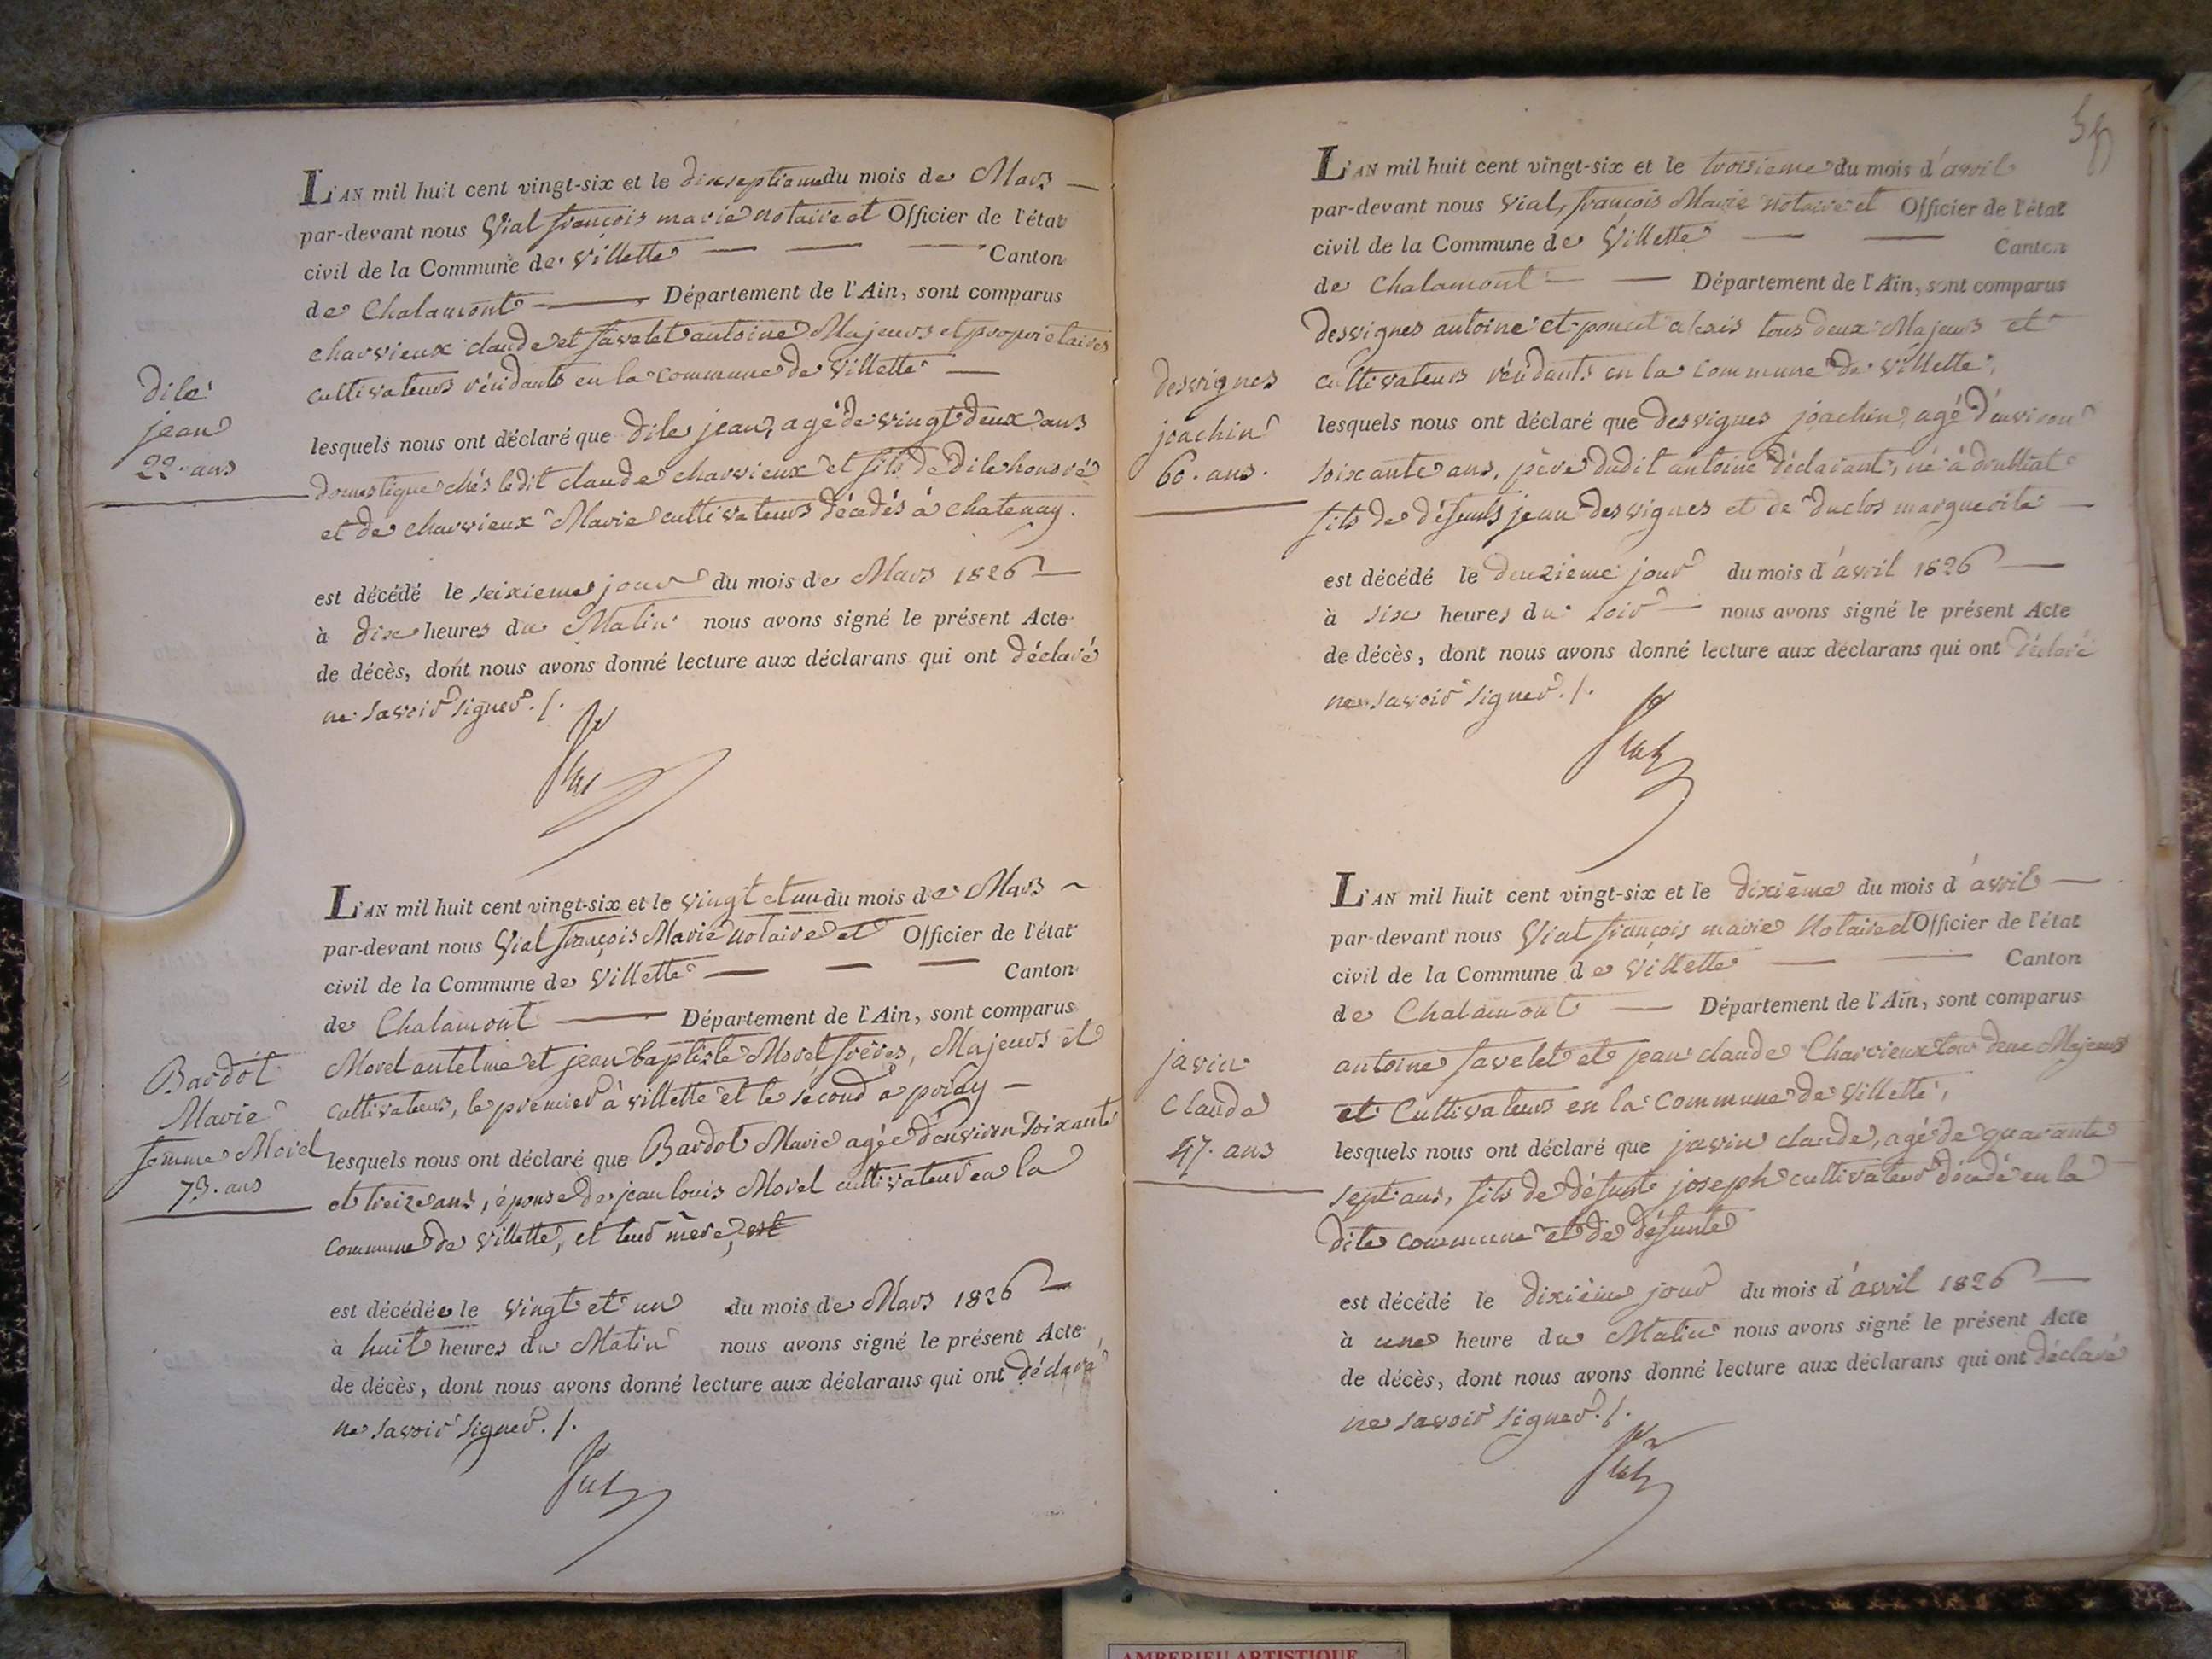 L'AN mil huit cent vingt-six et le dixseptieme du mois de Mars
par-devant nous Vial françois marie notaire et Officier de l'état
civil de la Commune de villette Canton
de Chalamont Département de l'Ain, sont comparus
charvieux claude et favelet antoine Majeurs et propriétaires
cultivateurs résidants en la commune de villette
dile
jean
22. ans
lesquels nous ont déclaré que dile jean, agé de vingt deux ans
domestique chés ledit claude charvieux et fils de dile honoré
et de charvieux Marie cultivateurs décédés à chatenay.
est décédé le seixieme jour du mois de Mars 1826
à dix heures du Matin nous avons signé le présent Acte
de décès, dont nous avons donné lecture aux déclarans qui ont déclaré
ne savoir signer ./.
L'AN mil huit cent vingt-six et le vingt et un du mois de Mars
par-devant nous Vial françois Marie notaire et Officier de l'état
civil de la Commune de villette Canton
de Chalamont Département de l'Ain, sont comparus
Morel antelme et jean baptiste Morel, frères, Majeurs et
cultivateurs, le premier à villette et le second à priay
Bardot
Marie
femme Morel
73. ans
lesquels nous ont déclaré que Bardot Marie agée d'environ soixante
et treize ans, épouse de jean louis Morel cultivateur en la
commune de villette, et leur mère, est
est décédée le vingt et un du mois de Mars 1826
à huit heures du Matin nous avons signé le présent Acte
de décès, dont nous avons donné lecture aux déclarans qui ont déclaré
ne savoir signer ./.
L'AN mil huit cent vingt-six et le troisieme du mois d'avril
par-devant nous Vial, françois Marie notaire et Officier de l'état
civil de la Commune de Villette Canton
de Chalamont Département de l'Ain, sont comparus
desvignes antoine et poncet alexis tous deux Majeurs et
cultivateurs résidants en la commune de villette,
desvignes
joachin
60. ans.
lesquels nous ont déclaré que desvignes joachin, agé d'environ
soixante ans, père dudit antoine déclarant, né à druillat
fils de défunts jean desvignes et de duclos marguerite
est décédé le deuzieme jour du mois d'avril 1826
à six heures du soir nous avons signé le présent Acte
de décès, dont nous avons donné lecture aux déclarans qui ont déclaré
ne savoir signer ./.
L'AN mil huit cent vingt-six et le dixième du mois d'avril
par-devant nous Vial françois marie Notaire et Officier de l'état
civil de la Commune de villette Canton
de Chalamont Département de l'Ain, sont comparus
antoine favelet et jean claude Charvieux tous deux Majeurs
et Cultivateurs en la commune de villette,
javin
claude
47. ans
lesquels nous ont déclaré que javin claude, agé de quarante
sept ans, fils de défunt joseph cultivateur décédé en la
dite commune et de défunte
est décédé le dixième jour du mois d'avril 1826
à une heure du Matin nous avons signé le présent Acte
de décès, dont nous avons donné lecture aux déclarans qui ont déclaré
ne savoir signer ./.
AMBERIEU ARTISTIQUE